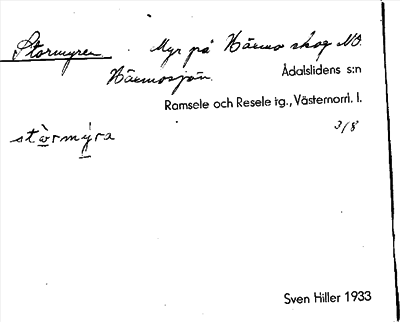 Stormyren. Myr på Härmo skog NO.
Härmosjön.
Ådalslidens s:n
Ramsele och Resele tg., Västernorrl. l.
3/8
stòrmýra
Sven Hiller 1933